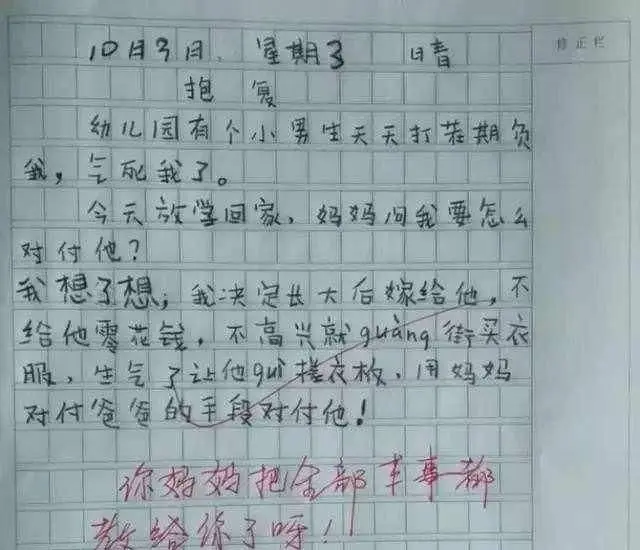 修正栏
10月3日 星期3 日晴
抱复
幼儿园有个小男生天天打在期负
我，气死我了。
今天放学回家，妈妈问我要怎么
对付他？
我想了想，我决定长大后嫁给他，不
给他零花钱，不高兴就guàng街买衣
服，生气了让他guì搓衣板，用妈妈
对付爸爸的手段对付他！
你妈妈把全部本事都
教给你了呀！